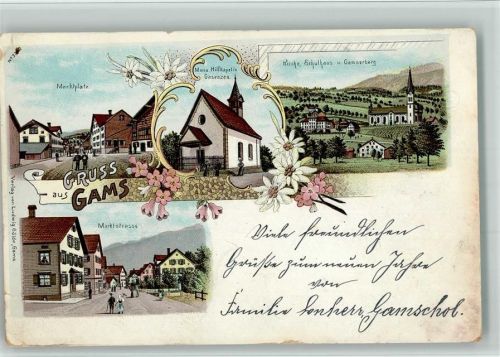 Marktplatz
Maria Hilfkapelle
Kirche, Schulhaus u. Gamserberg
GRUSS
aus
GAMS
Marktstrasse
Verlag von Ludwig
Viele freundlichen
Grüße zum neuen Jahre
von
Familie Lenherr Gamschol.